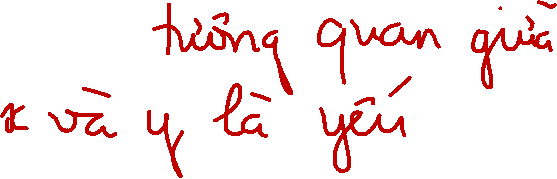 tương quan giữa
x và y là yếu